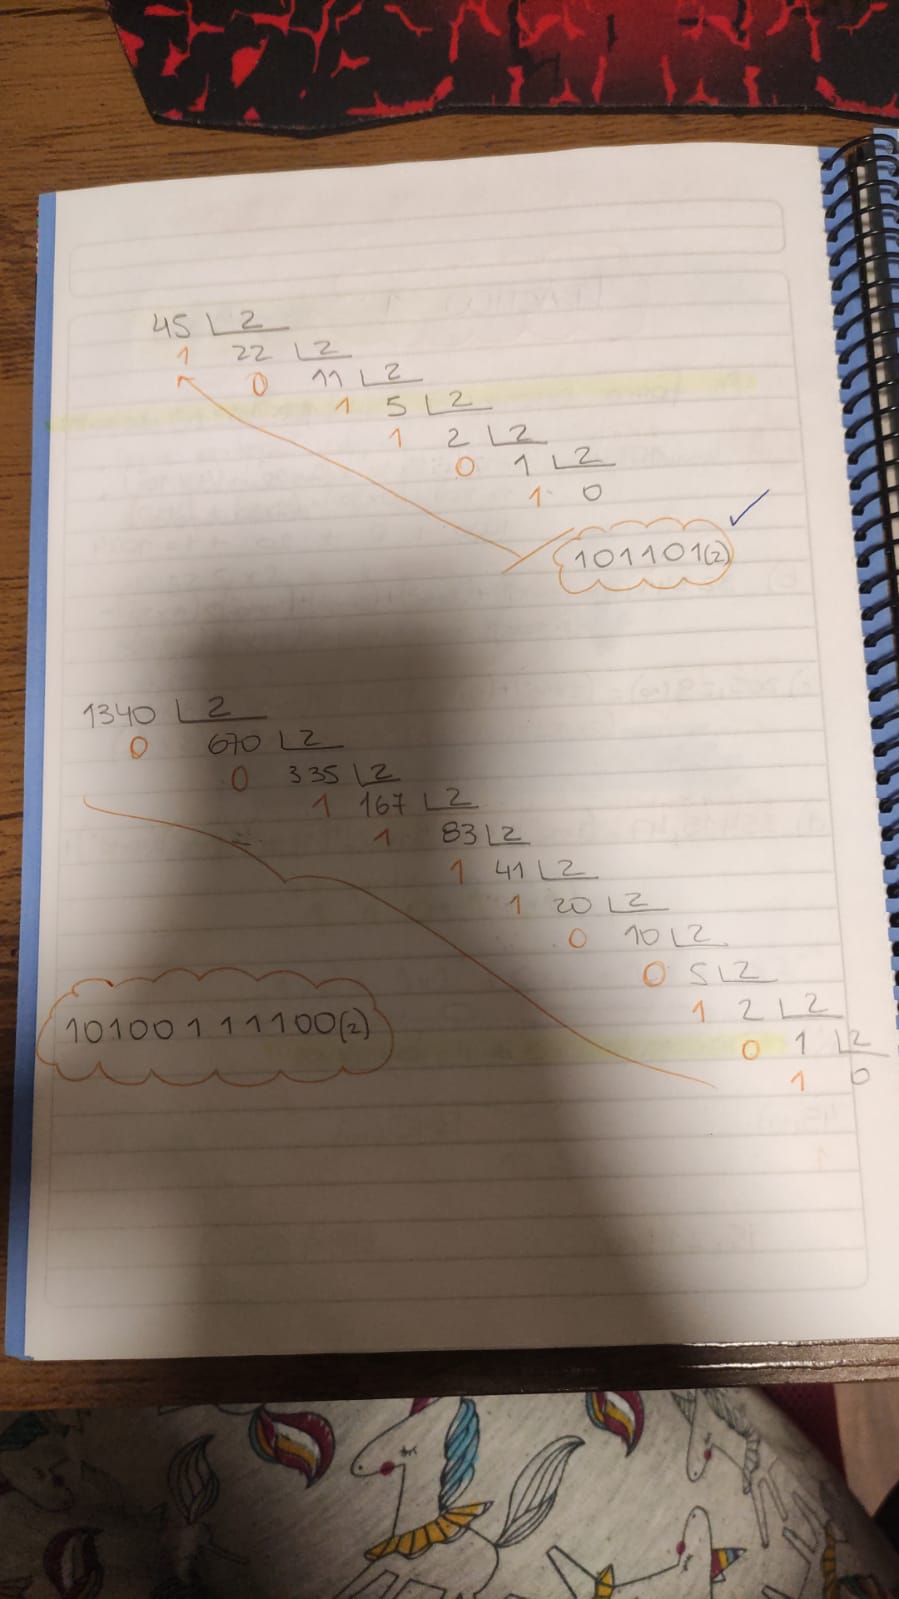 45 2
1 22 2
0 11 2
1 5 2
1 2 2
0 1 2
1 0
101101(2)
1340 2
0 670 2
0 335 2
1 167 2
1 83 2
1 41 2
1 20 2
0 10 2
0 5 2
1 2 2
0 1 2
1 0
10100111100(2)